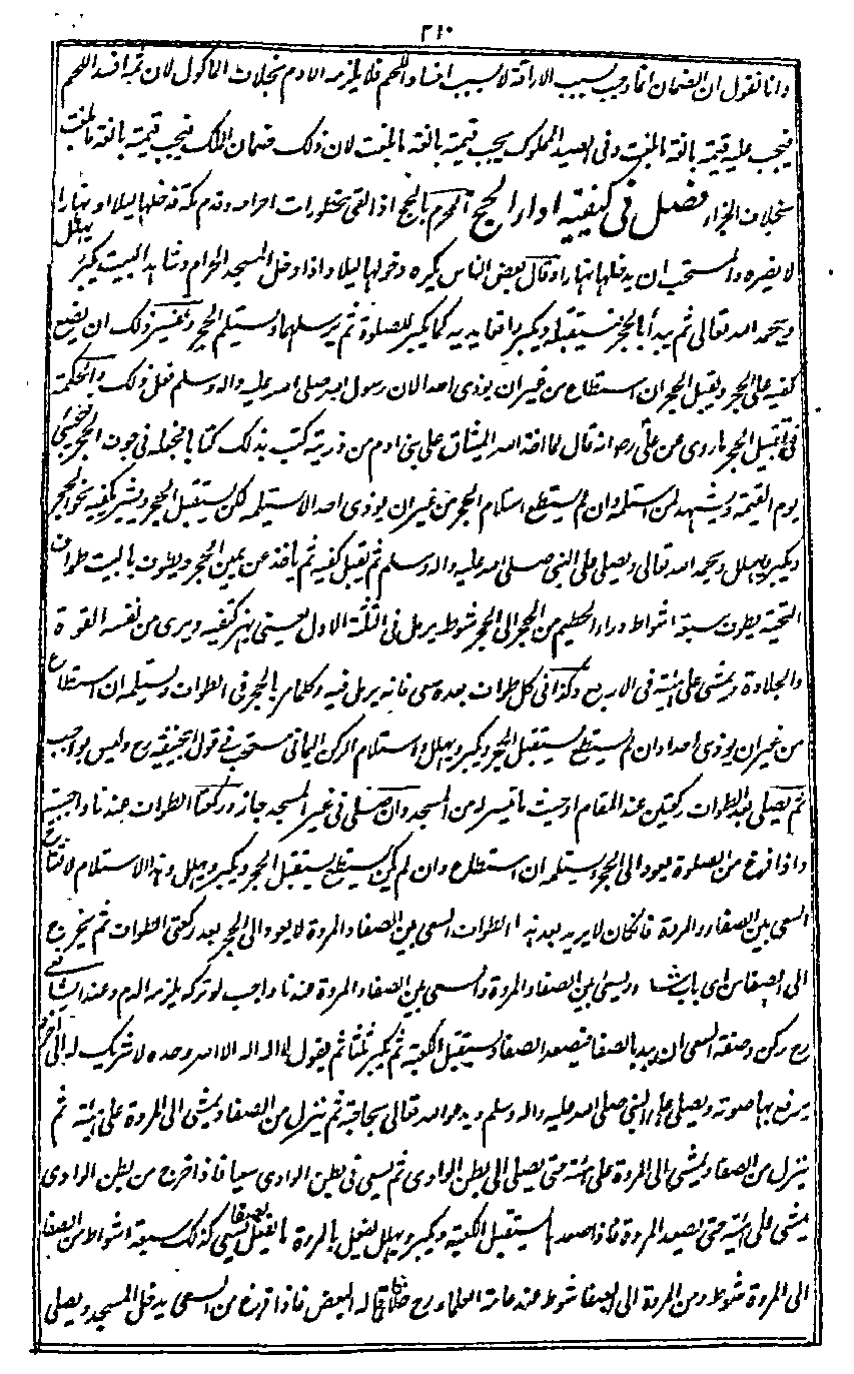 ٢١٠
وانا نقول ان الضمان انما وجب بسبب الاراقة لا بسبب افساد اللحم فلا يلزمه الا دم بخلاف الماكول لان ثمه افسد اللحم
فيجب عليه قيمته بالغة ما بلغت وفى الصيد المملوك يجب قيمته بالغة ما بلغت لان ذلك ضمان الملك فيجب قيمته بالغة ما بلغت
بخلاف الجزاء فصل فى كيفية اداء الحج المحرم بالحج اذا اتقى محظورات احرامه وقدم مكة فدخلها ليلا او نهارا
لا يضره والمستحب ان يدخلها نهارا وقال بعض الناس يكره دخولها ليلا واذا دخل المسجد الحرام وشاهد البيت يكبر ويهلل
ويحمد الله تعالى ثم يبدأ بالحجر فيستقبله ويكبر رافعا يديه كما يكبر للصلوة ثم يرسلهما ويستلم الحجر وتفسير ذلك ان يضع
كفيه على الحجر ويقبل الحجر ان استطاع من غير ان يوذى احدا لان رسول الله صلى الله عليه واله وسلم فعل ذلك والحكمة
فى تقبيل الحجر ما روى عن على رض انه قال لما اخذ الله الميثاق على بنى ادم من ذريته كتب بذلك كتابا فجعله فى جوف الحجر فيجئ
يوم القيمة ويشهد لمن استلمه وان لم يستطع استلام الحجر من غير ان يوذى احدا لا يستلمه لكن يستقبل الحجر ويشير بكفيه نحو الحجر
ويكبر ويهلل ويحمد الله تعالى ويصلى على النبى صلى الله عليه واله وسلم ثم يقبل كفيه ثم ياخذ عن يمين الحجر ويطوف بالبيت طواف
التحية يطوف سبعة اشواط وراء الحطيم من الحجر الى الحجر شوط يرمل فى الثلثة الاول يعنى يهز كتفيه ويرى من نفسه القوة
والجلادة ويمشى على هئته فى الاربع وكذا فى كل طواف بعده سعى فانه يرمل فيه وكلما مر بالحجر فى الطواف يستلمه ان استطاع
من غير ان يوذى احدا وان لم يستطع يستقبل الحجر ويكبر ويهلل واستلام الركن اليمانى مستحب فى قول ابيحنيفة رح وليس بواجب
ثم يصلى بعد الطواف ركعتين عند المقام او حيث ما تيسر له من المسجد وان صلى فى غير المسجد جاز وركعتا الطواف عندنا واجبة
واذا فرغ من الصلوة يعود الى الحجر ويستلمه ان استطاع وان لم يكن يستطيع يستقبل الحجر ويكبر ويهلل وهذا الاستلام لافتتاح
السعى بين الصفا والمروة فانكان لا يريد بعد هذا الطواف السعى بين الصفا والمروة لا يعود الى الحجر بعد ركعتى الطواف ثم يخرج
الى الصفا من اى باب شاء ويسعى بين الصفا والمروة والسعى بين الصفا والمروة عندنا واجب لو تركه يلزمه الدم وعند الشافعى
رح ركن وصفة السعى ان يبدأ بالصفا فيصعد الصفا ويستقبل الكعبة ثم يكبر ثلثا ثم يقول لا اله الا الله وحده لا شريك له الى اخره
يرفع بها صوته ويصلى على النبى صلى الله عليه واله وسلم ويدعو الله تعالى بحاجته ثم ينزل من الصفا ويمشى الى المروة على هئته ثم
ينزل من الصفا ويمشى الى المروة على هئته حتى يصلى الى بطن الوادى ثم يسعى فى بطن الوادى سعيا فاذا خرج من بطن الوادى
يمشى على هئته حتى يصعد المروة فاذا صعد يستقبل الكعبة ويكبر ويهلل يفعل بالمروة ما يفعل بالصفا يسعى كذلك سبعة اشواط من الصفا
الى المروة شوط ومن المروة الى الصفا شوط عند عامة العلماء رح خلافا لما قاله البعض فاذا فرغ من السعى يدخل المسجد ويصلى